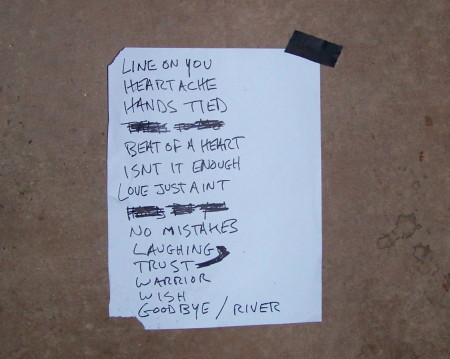 LINE ON YOU
HEARTACHE
HANDS TIED
BEAT OF A HEART
ISNT IT ENOUGH
LOVE JUST AINT
NO MISTAKES
LAUGHING
TRUST
WARRIOR
WISH
GOODBYE / RIVER